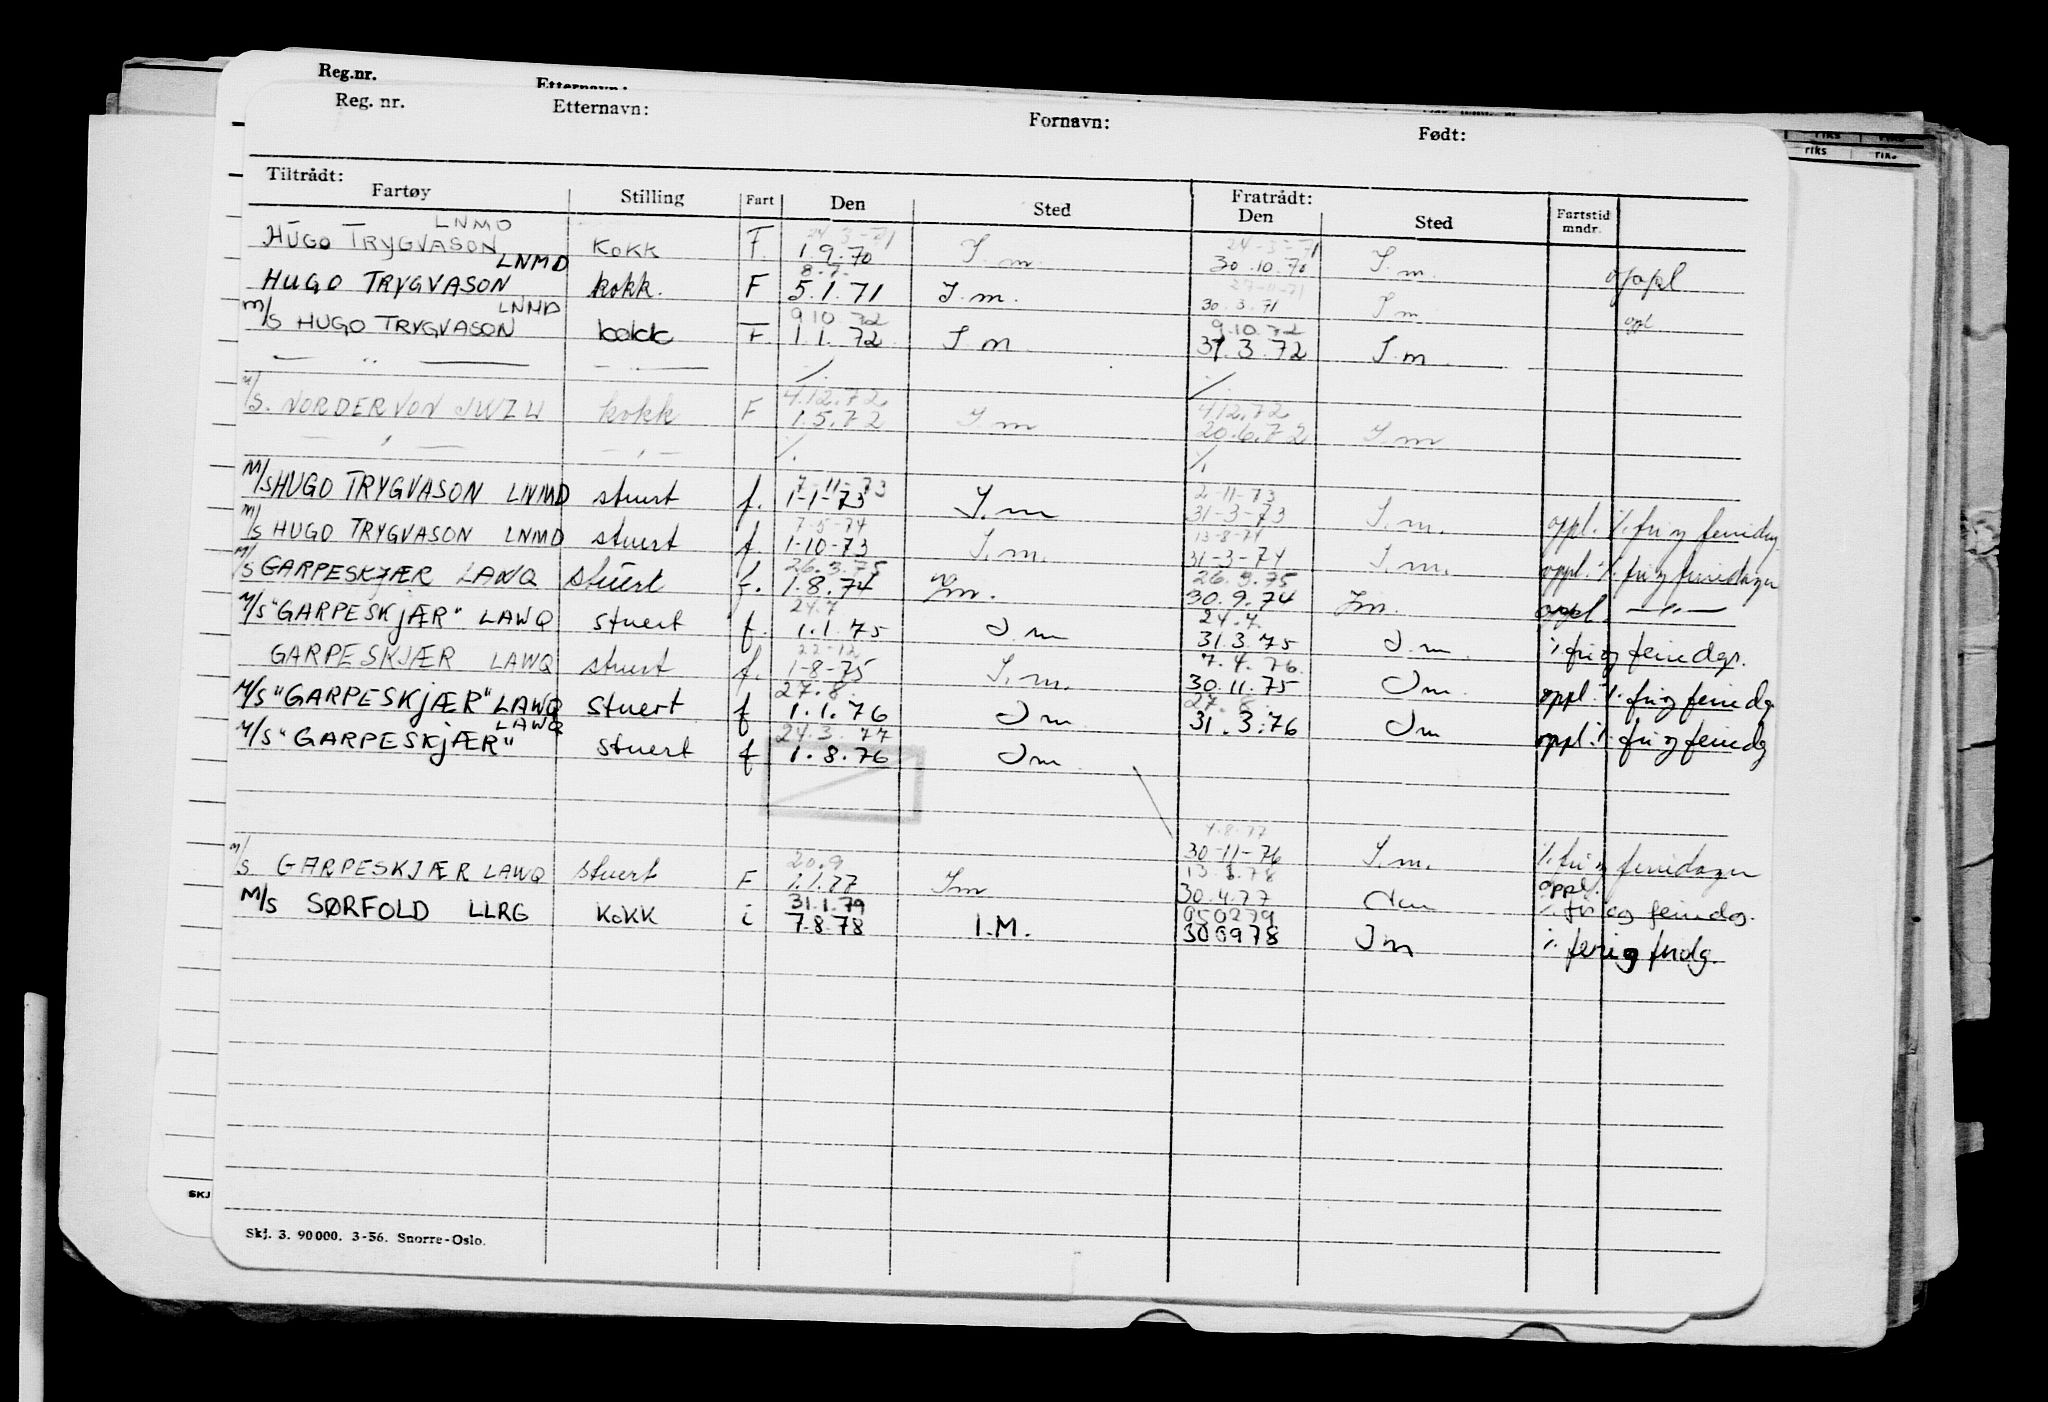 Reg.nr. Etternavn:
Reg. nr. Etternavn: Fornavn: Født:
riks
riks riks
Tiltrådt: Fratrådt:
Fartøy Stilling Fart Den Sted Den Sted Fartstid mndr.
LNMD 24-3-71 24-3-71
HUGO TRYGVASON KOKK F. 1.9.70 I.m. 30.10.70 I.m. oppl
LNMD 8.7.
HUGO TRYGVASON kokk. F 5.1.71 I.m. 30.3.71 I.m opl
LNMD 9.10.72 9.10.72
M/S HUGO TRYGVASON kokk F. 1.1.72 I.m. 31.3.72 I.m.
— " — — — ./. ./.
4.12.72 4.12.72
M/S. NORDERVON JWZW kokk F 1.5.72 I m 20.6.72 I m
— , — — , — ./. ./.
7-11-73 2-11-73
M/S HUGO TRYGVASON LNMD stuert f. 1-1-73 I.m 31-3-73 I.m. oppl. ./. fri og feriedag.
7-5-74 13-8-74
M/S HUGO TRYGVASON LNMD stuert f. 1-10-73 I.m. 31-3-74 I.m. oppl. ./. fri og feriedager
26.3.75 26.3.75
M/S GARPESKJÆR LAWQ stuert f. 1.8.74 Im. 30.9.74 Im. oppl. —"—
24.7 24.7.
M/S "GARPESKJÆR" LAWQ stuert f. 1.1.75 I m 31.3.75 I.m ./. fri og feriedgr.
22-12 7.4.76.
GARPESKJÆR LAWQ stuert f. 1-8-75 I.m. 30.11.75 I m. oppl. ./. fri og feriedg
27.8. 27.8.
M/S "GARPESKJÆR" LAWQ stuert f 1.1.76 I m 31.3.76 I m oppl. ./. fri og feriedg
LAWQ 24.3.77
M/S "GARPESKJÆR" stuert f 1.8.76 I m
4.8.77
30-11-76 I.m. ./. fri og feriedager
20.9
M/S. GARPESKJÆR LAWQ stuert F 1.1.77 I m 30.4.77 oppl. ./. fri og feriedg.
31.1.79 050279
M/S SØRFOLD LLRG KOKK i 7.8.78 I.M. 300978 I m ./. feri og fridg.
SKJ
Skj. 3. 90000. 3-56. Snorre-Oslo.